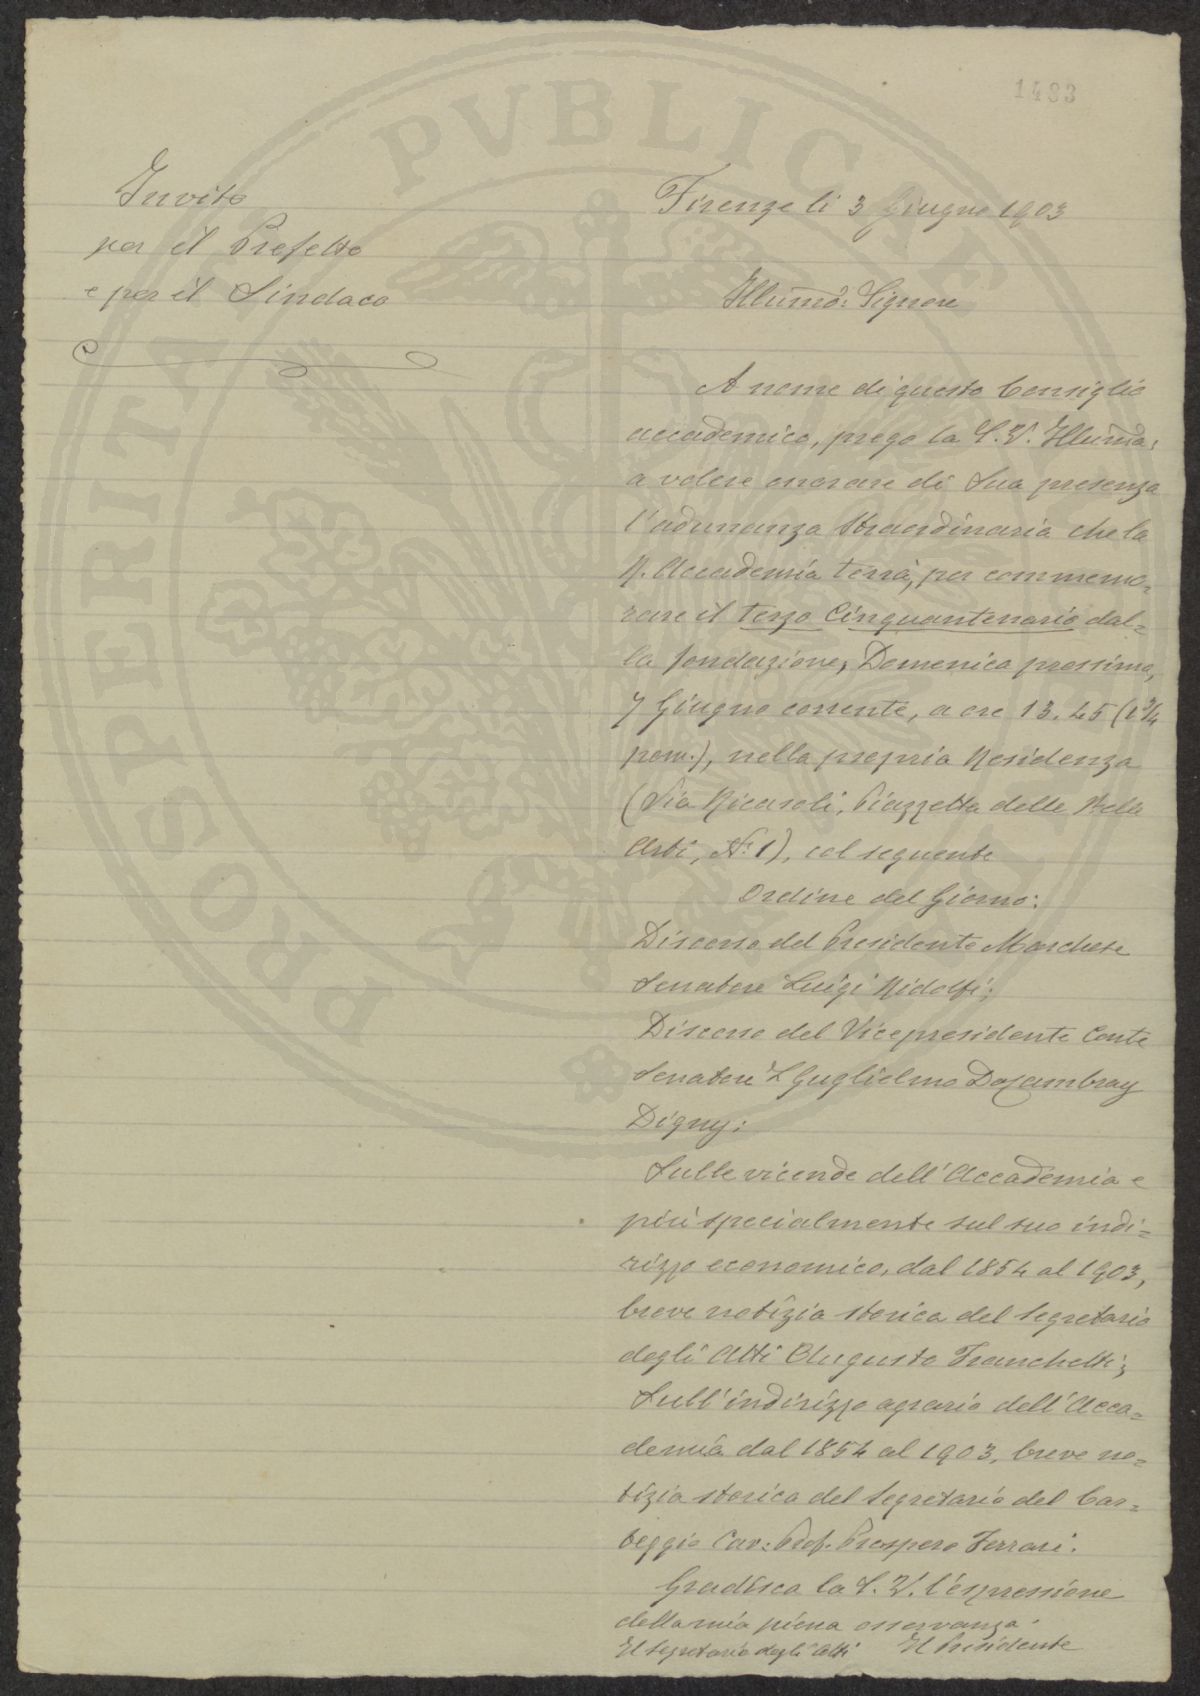 1483
Invito
per il Prefetto
e per il Sindaco
Firenze li 3 Giugno 1903
Illumo: Signore
A nome di questo Consiglio
accademico, prego la S.V. Illuma:
a volere onorare di Sua presenza
l'adunanza straordinaria che la
R. Accademia terrà, per commemo=
rare il terzo Cinquantenario dal=
la fondazione, Domenica prossima,
7 Giugno corrente, a ore 13.45 (1 3/4
pom.), nella propria Residenza
(Via Ricasoli, Piazzetta delle Belle
Arti, No: 1), col seguente
Ordine del Giorno:
Discorso del Presidente Marchese
Senatore Luigi Ridolfi;
Discorso del Vicepresidente Conte
Senatore L Guglielmo De Cambray
Digny;
Sulle vicende dell'Accademia e
più specialmente sul suo indi=
rizzo economico, dal 1854 al 1903,
breve notizia storica del Segretario
degli Atti Augusto Franchetti;
Sull'indirizzo agrario dell'Acca=
demia dal 1854 al 1903, breve no=
tizia storica del Segretario del Car=
teggio Cav: Prof. Prospero Ferrari.
Gradisca la S.V. l'espressione
della mia piena osservanza.
Il Segretario degli Atti Il Presidente
PROSPERITATI PVBLICAE